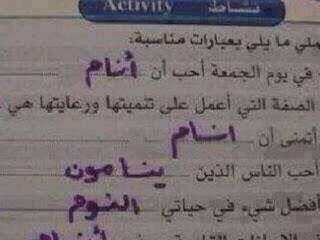 نشاط Activity
ملي ما يلي بعبارات مناسبة:
في يوم الجمعة أحب أن أنام
الصفة التي أعمل على تنميتها ورعايتها هي
أتمنى أن انام
أحب الناس الذين ينامون
أفضل شيء في حياتي النوم